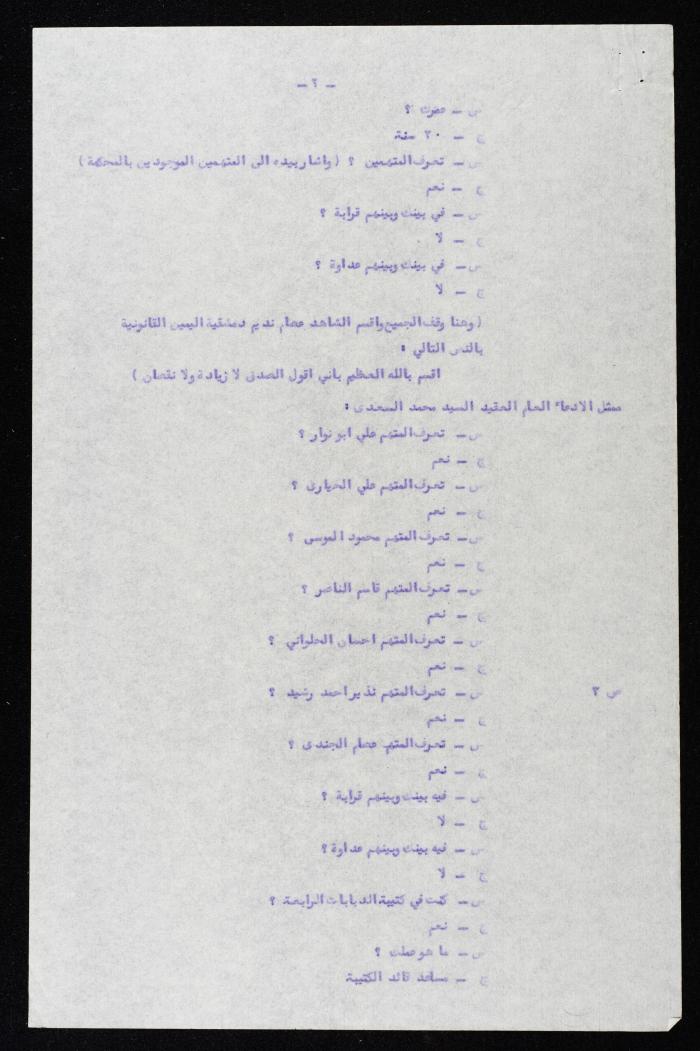 - ٢ -
س - عمرك ؟
ج - ٣٠ سنة
س - تعرف المتهمين ؟ ( واشار بيده الى المتهمين الموجودين بالمحكمة )
ج - نعم
س - في بينك وبينهم قرابة ؟
ج - لا
س - في بينك وبينهم عداوة ؟
ج - لا
( وهنا وقف الجميع واقسم الشاهد عصام نديم دمشقية اليمين القانونية
بالنص التالي :
اقسم بالله العظيم باني اقول الصدق لا زيادة ولا نقصان )
ممثل الادعاء العام العقيد السيد محمد السعدى :
س - تعرف المتهم علي ابو نوار ؟
ج - نعم
س - تعرف المتهم علي الحيارى ؟
ج - نعم
س - تعرف المتهم محمود الموسى ؟
ج - نعم
س - تعرف المتهم قاسم الناصر ؟
ج - نعم
س - تعرف المتهم احسان الحلواني ؟
ج - نعم
ص ٣ س - تعرف المتهم نذير احمد رشيد ؟
ج - نعم
س - تعرف المتهم عصام الجندى ؟
ج - نعم
س - فيه بينك وبينهم قرابة ؟
ج - لا
س - فيه بينك وبينهم عداوة ؟
ج - لا
س - كنت في كتيبة الدبابات الرابعة ؟
ج - نعم
س - ما هو عملك ؟
ج - مساعد قائد الكتيبة